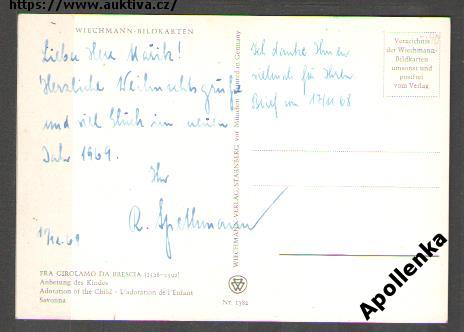 https://www.auktiva.cz/
WIECHMANN-BILDKARTEN
Lieber Herr
Herzliche Weihnachtsgrüße
und viel Glück im neuen
Jahr 1969.
Ihr
R. Spethmann
Ich danke Ihnen
vielmals für Ihren
Brief vom 17/11 68
Verzeichnis
der Wiechmann-
Bildkarten
umsonst und
postfrei
vom Verlag
WIECHMANN-VERLAG-STARNBERG vor München Printed in Germany
FRA GIROLAMO DA BRESCIA
Anbetung des Kindes
Adoration of the Child · L'adoration de l'Enfant
Savonna
Nr. 1382
Apollenka